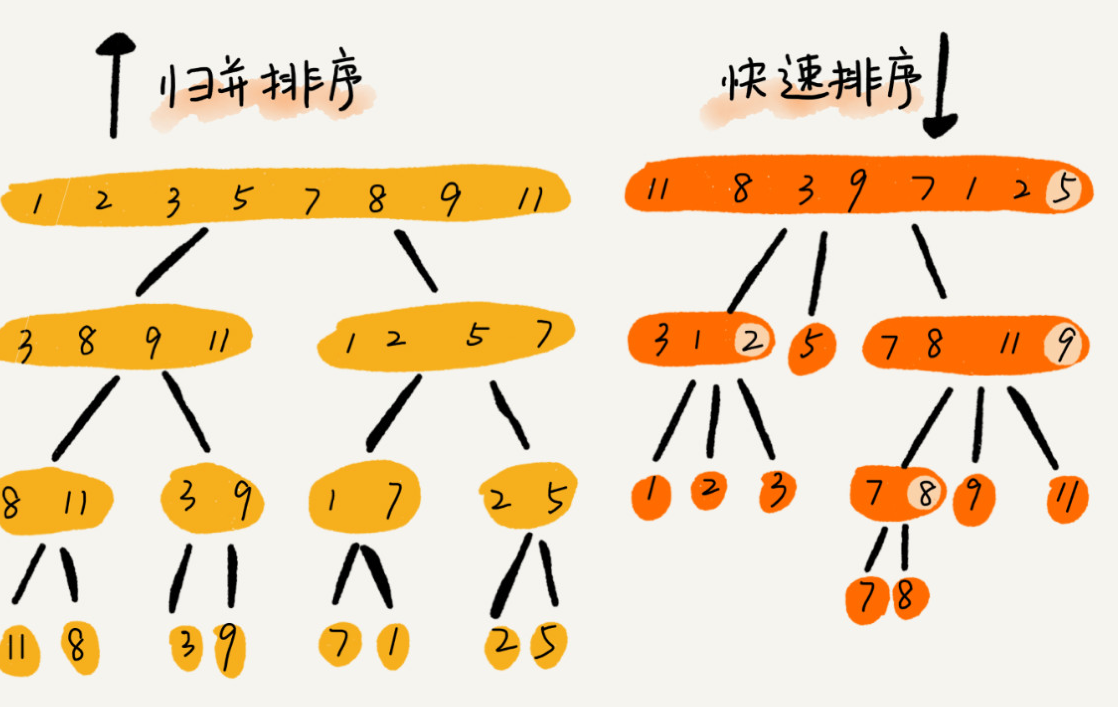 归并排序
1 2 3 5 7 8 9 11
3 8 9 11 1 2 5 7
8 11 3 9 1 7 2 5
11 8 3 9 7 1 2 5
快速排序
11 8 3 9 7 1 2 5
3 1 2 5 7 8 11 9
1 2 3 7 8 9 11
7 8